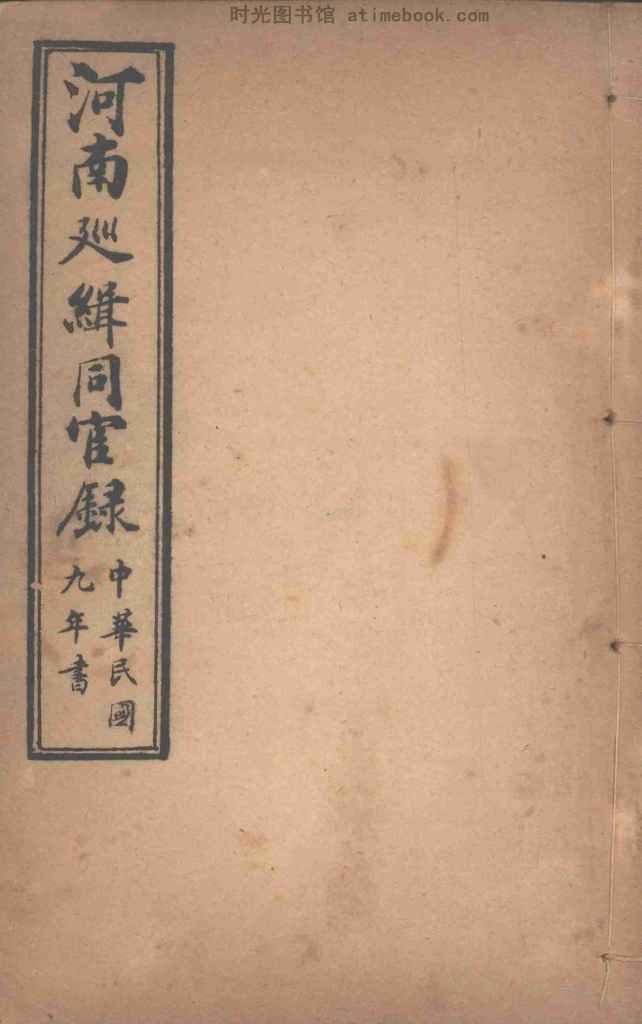 时光图书馆 atimebook.com
河南廵緝同官録
中華民國
九年書